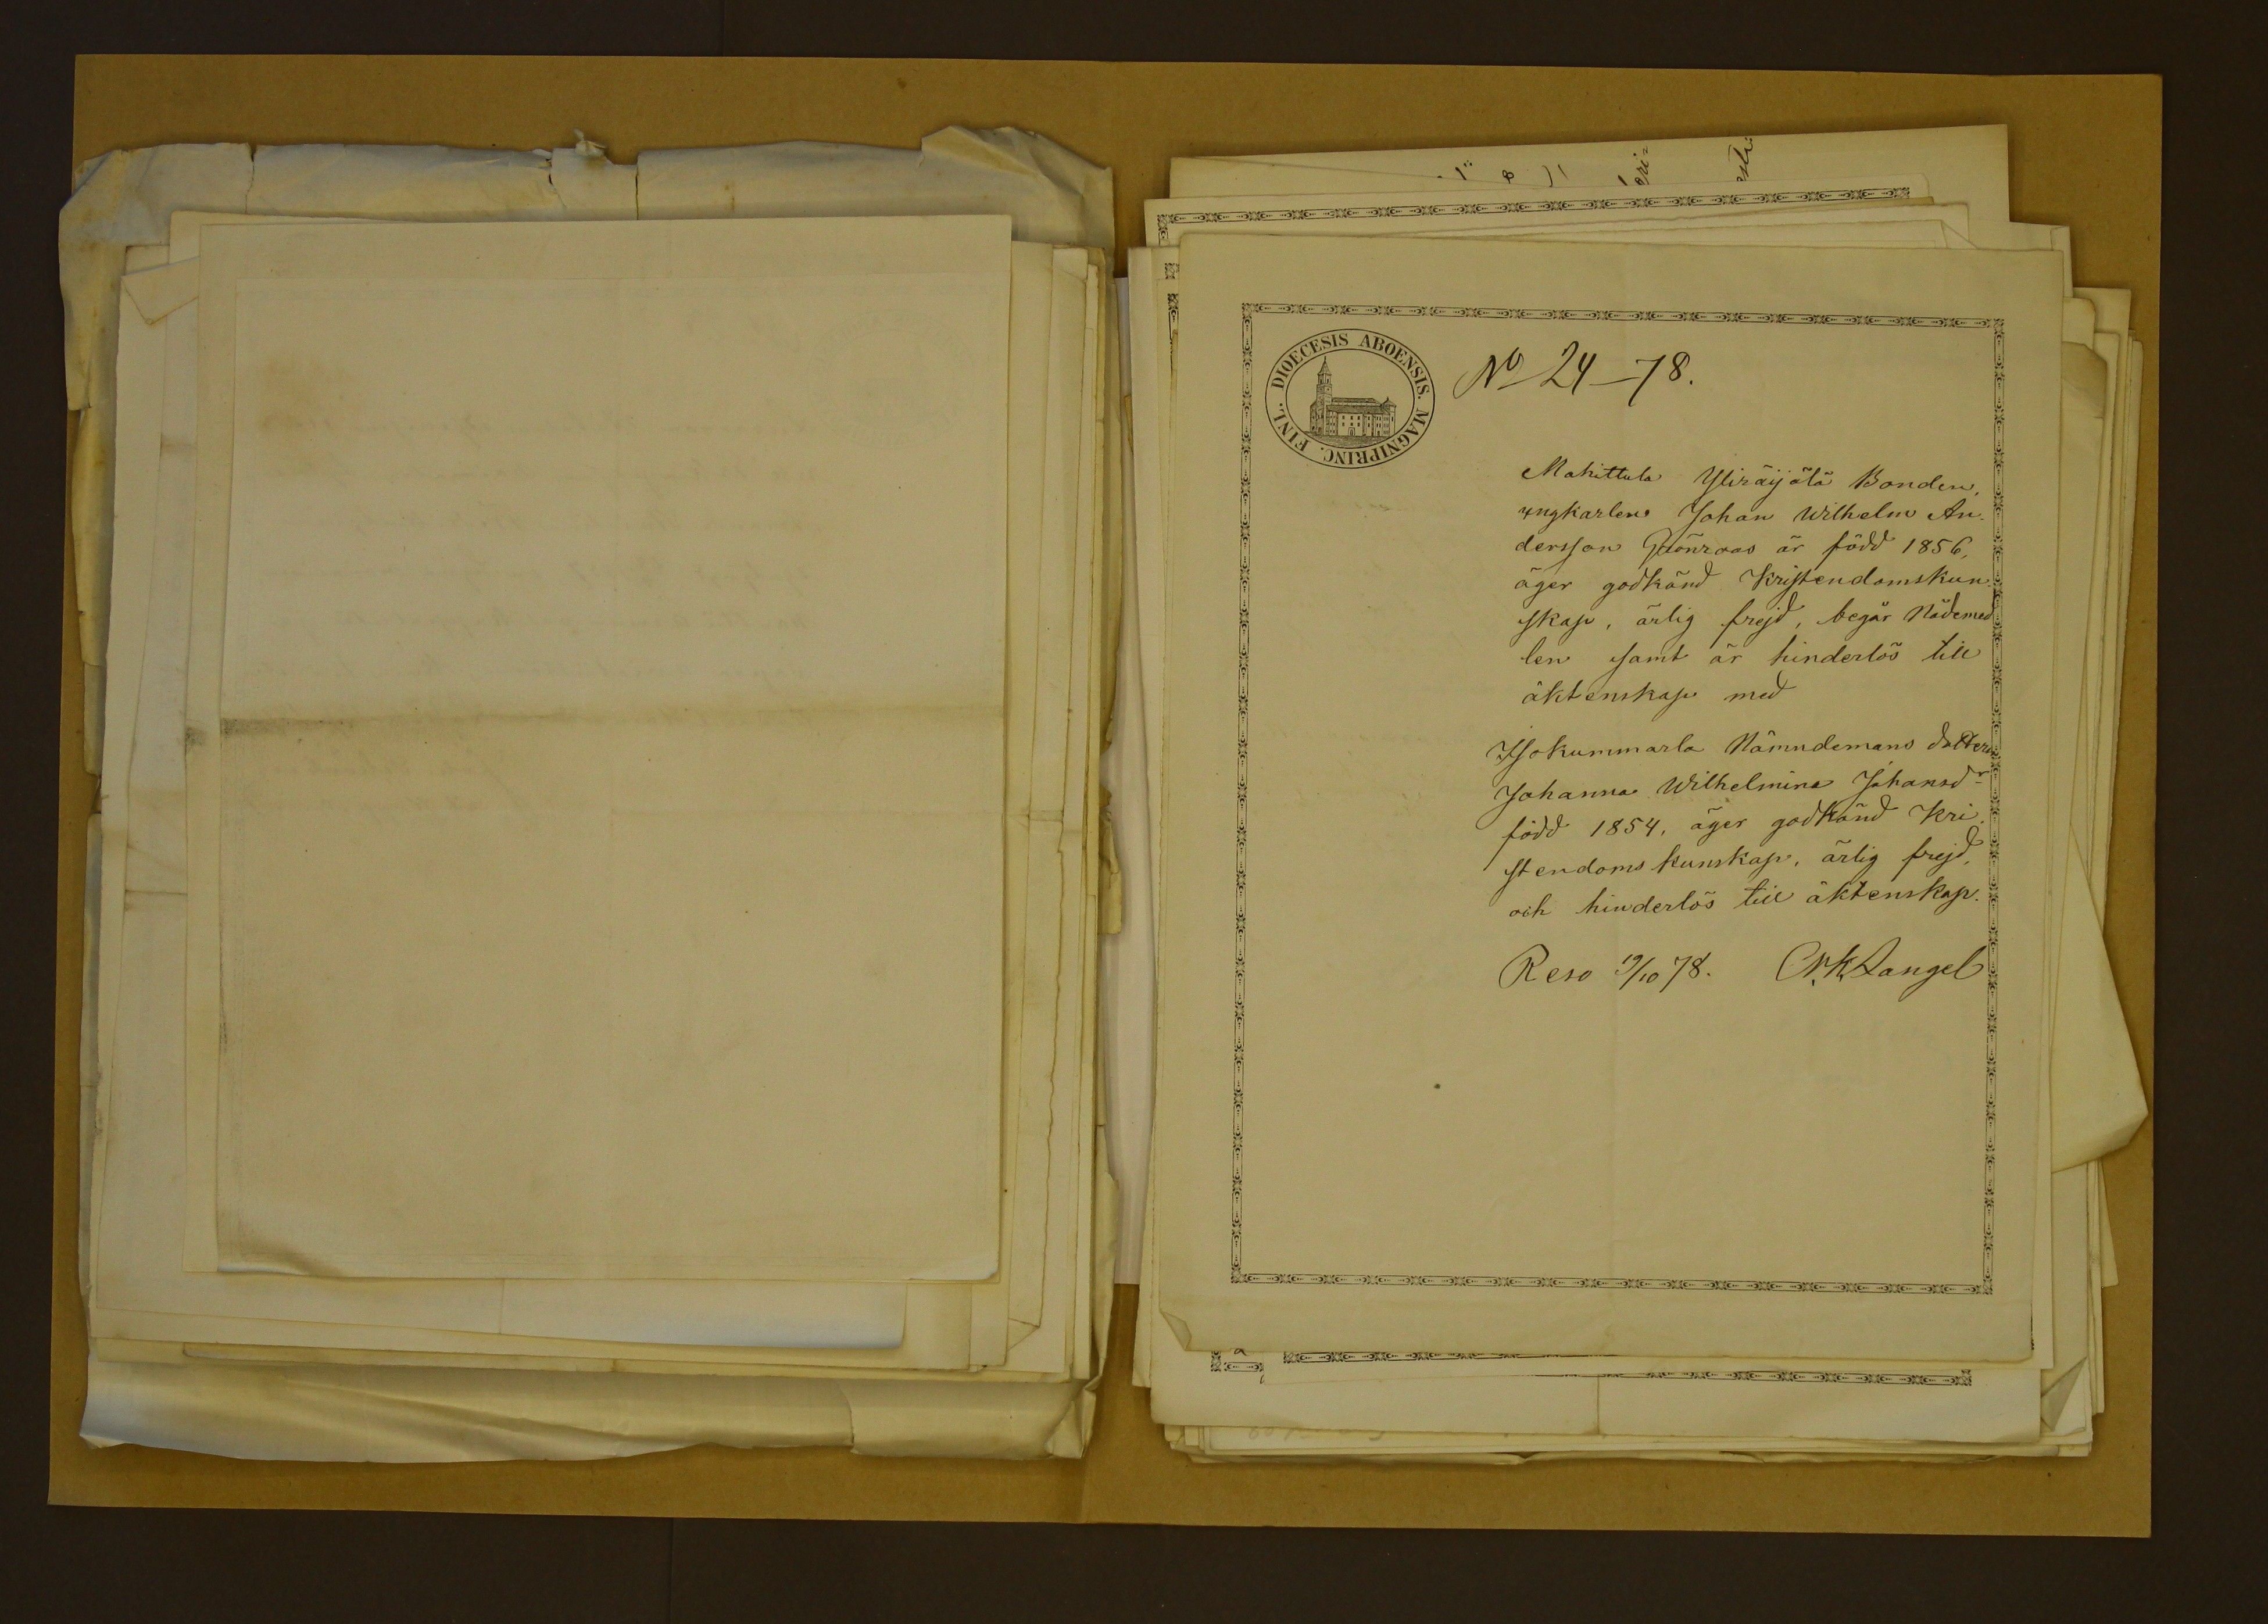 DIOECESIS ABOENSIS. MAGNIPRINC. FINL.
No 24–78.
Mahittula Yliräijälä Bonden,
ungkarlen Johan Wilhelm An-
dersson Grönroos är född 1856,
äger godkänd Kristendomskun-
skap, ärlig frejd, begår Nådemed
len samt är hinderlös till
äktenskap med
Isokummarla Nämndemans dottern
Johanna Wilhelmina Johansdr
född 1854, äger godkänd Kri-
stendoms kunskap, ärlig frejd,
och hinderlös till äktenskap.
Reso 19/10 78. Langel